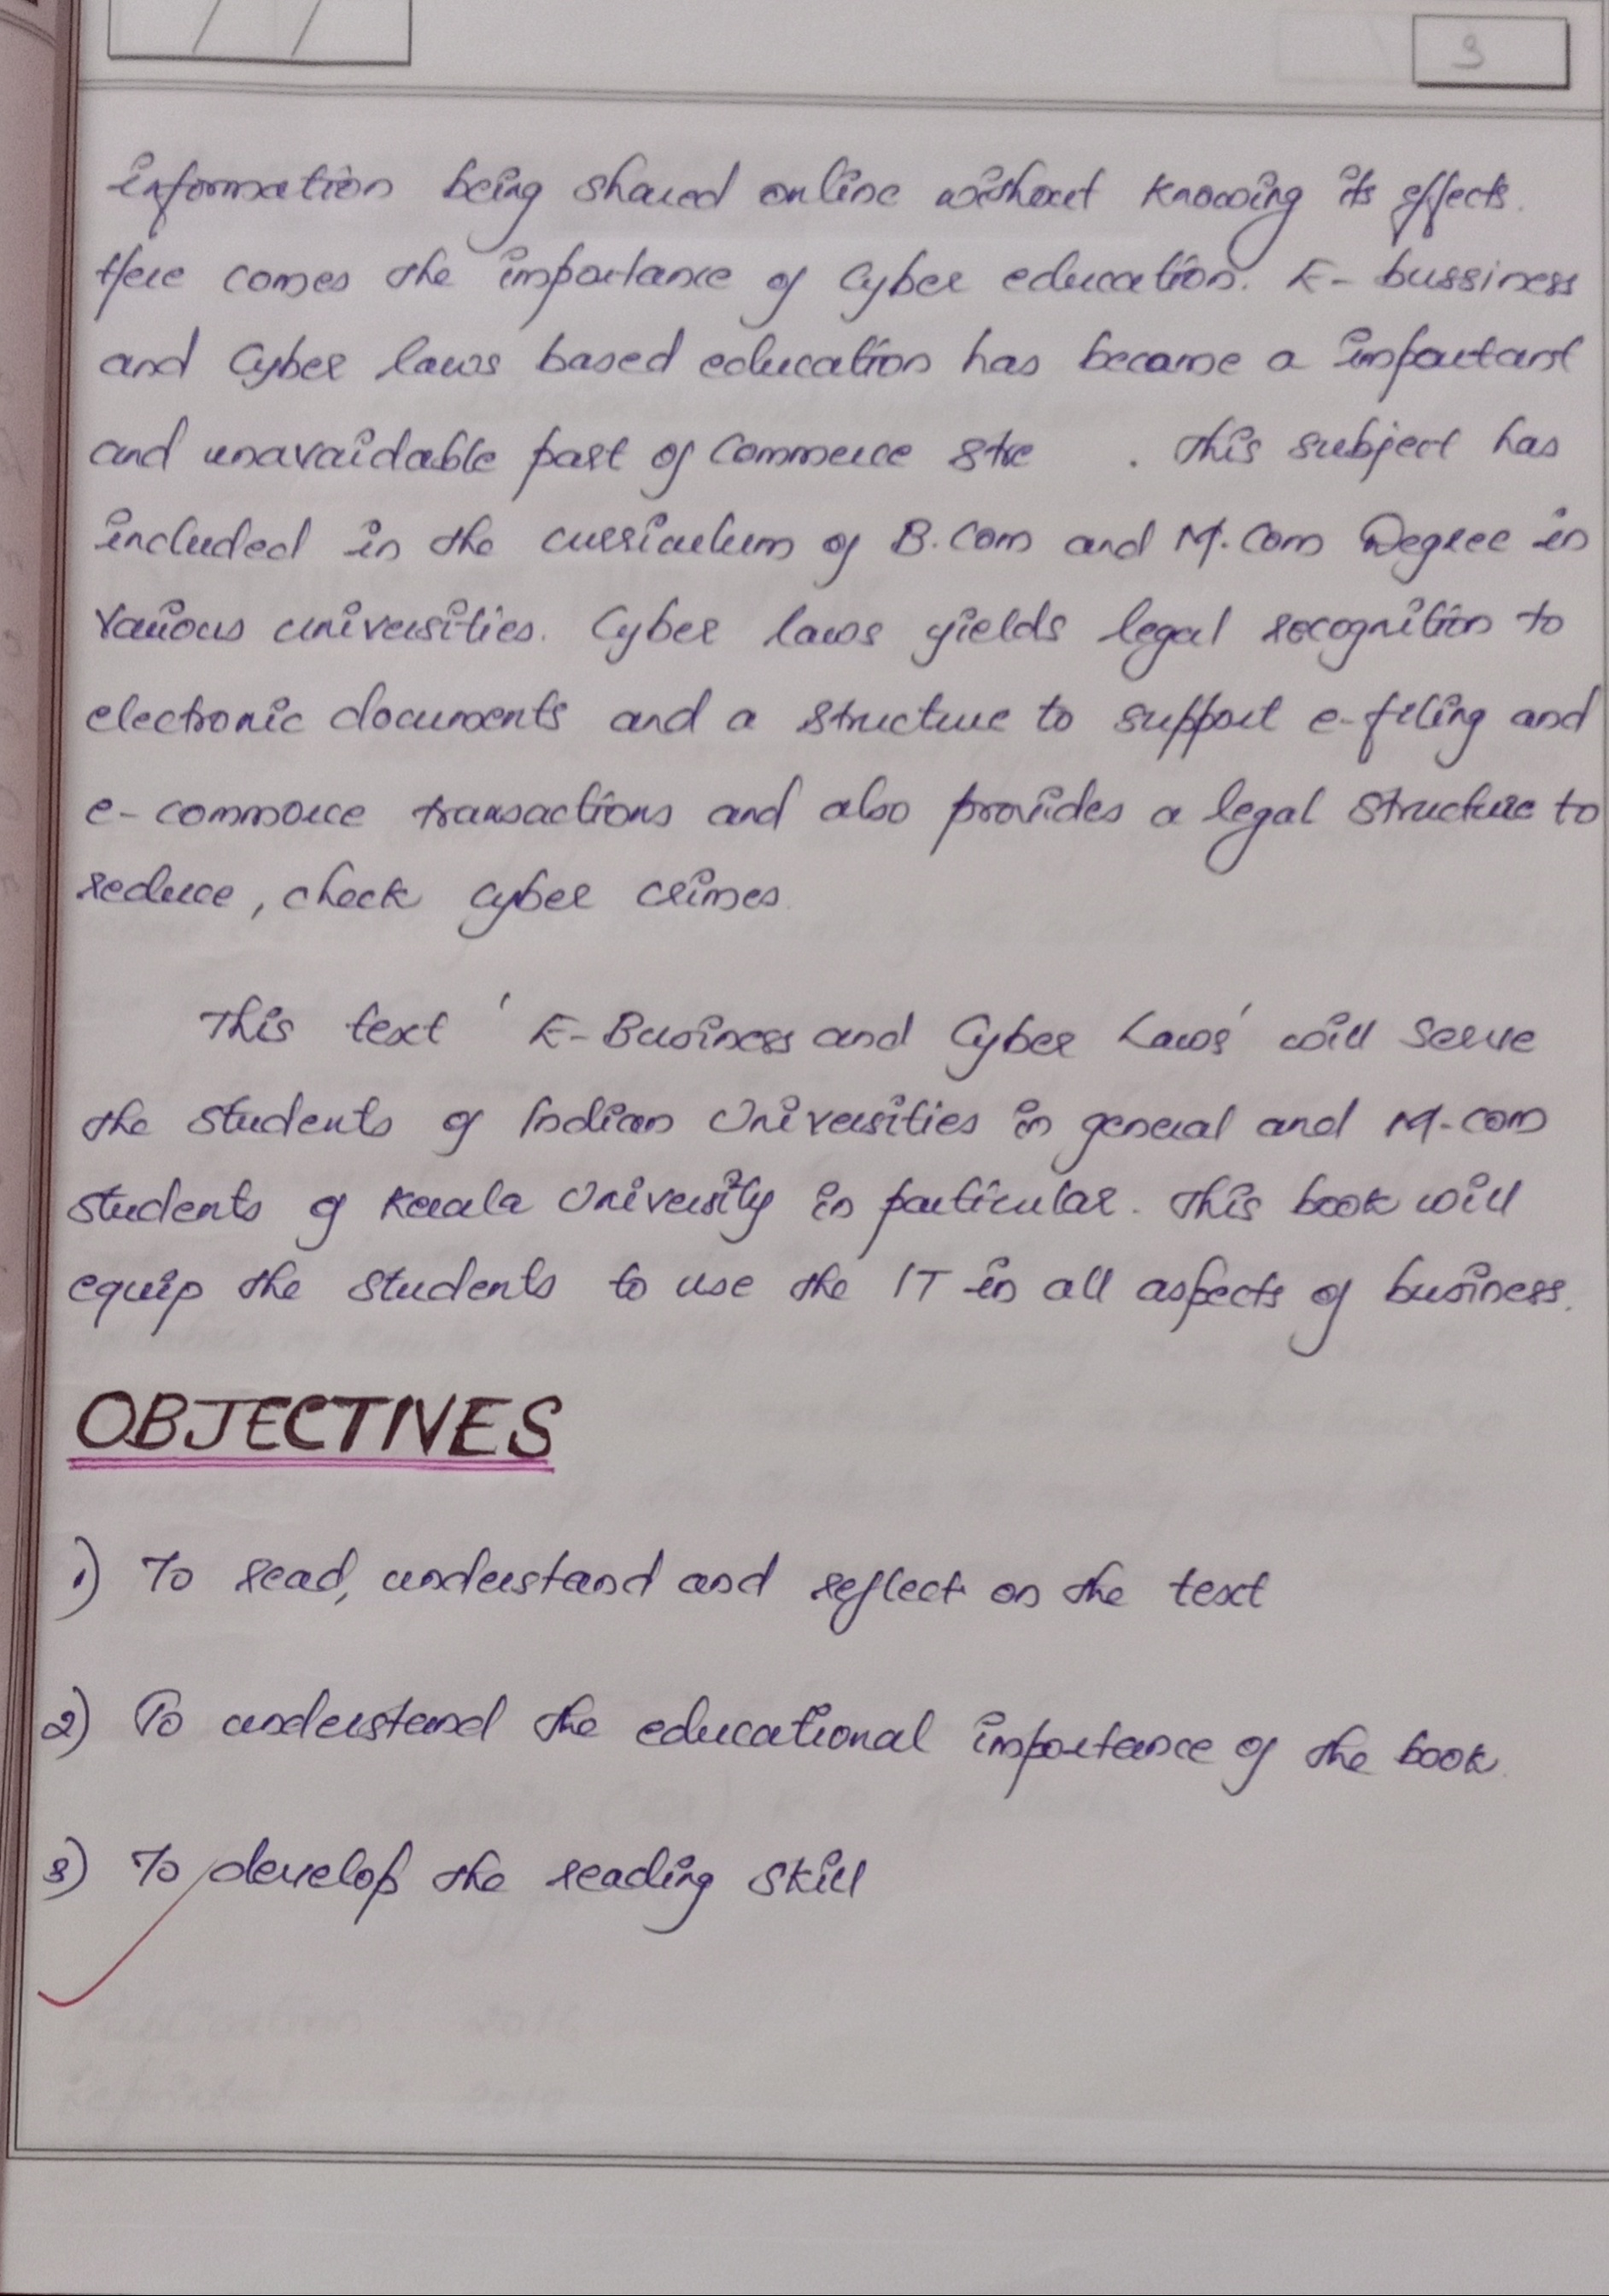 3
information being shared online without knowing its effects.
Here comes the importance of Cyber education. E- bussiness
and Cyber laws based education has became a important
and unavaidable part of Commerce stre . This subject has
included in the curriculum of B.Com and M.Com Degree in
Various universities. Cyber laws yields legal recognition to
electronic documents and a structure to support e-filing and
e-commerce transactions and also provides a legal structure to
reduce, check cyber crimes.
This text 'E-Business and Cyber Laws' will serve
the students of Indian Universities in general and M-com
students of Kerala University in particular. This book will
equip the students to use the IT in all aspects of business.
OBJECTIVES
1) To read, understand and reflect on the text
2) To understand the educational importance of the book.
3) To develop the reading skill